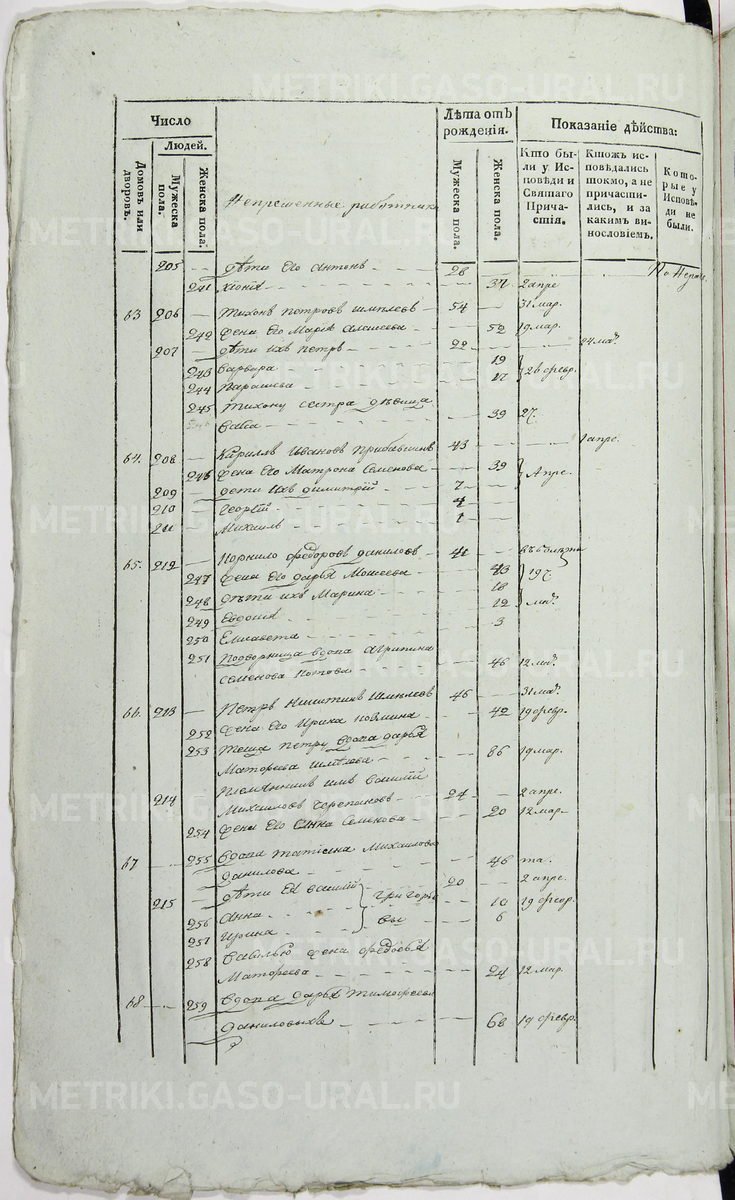 METRIKI.GASO-URAL.RU
Число
Людей.
Домовъ или дворовъ.
Мужеска пола.
Женска пола.
Непременные работники
Лѣта отъ рожденія.
Мужеска пола.
Женска пола.
Показаніе дѣйства:
Кто были у Исповѣди и Святаго Причастія.
Ктожъ исповѣдались токмо, а не причастились, и за какимъ винословіемъ.
Которые у Исповѣди не были.
205 — дѣти его Антонъ 28
241 Хіонія 37 2 апре
63 206 — Тихонъ Петровъ 54 31 мар.
242 жена его Марія Алексеева 52 19 мар.
207 — дѣти ихъ Петръ 22 24 мар.
243 Варвара 19 26 февр.
244 Парасковья 17
245 Тихону сестра дѣвица
39 27
64. 208 — Кирилъ Ивановъ 43 1 апре.
246 жена его Матрона Семенова 39 Апре.
209 — дети ихъ Димитрій 7
210 — Георгій 4
211 — Михаилъ 1
65. 212 — Корнило Федоровъ Даниловъ 41
247 жена его Дарья Моисеева 43 19
248 дѣти ихъ Марина 18
249 Евдокія 12 мар.
250 Елисавета 3
251 Подворница вдова Агрипина
Семенова 46 12 мар.
66. 213 — Петръ Никитинъ 46 31 мар.
252 жена его Ирина 42 19 февр.
253 Теща Петру вдова Дарья
86 19 мар.
214 Племянникъ имъ Василій
Михаиловъ Черепановъ 24 2 апре.
254 жена его Анна Семенова 20 12 мар
67 255 Вдова Татіана Михаилова
Данилова 46
215 — дѣти ея Василій 20 2 апре.
256 Анна 10 19 февр.
257 Ирина 6
258 Василью жена
24 12 мар.
68 259 Вдова Дарья Тимофеева
Даниловыхъ 68 19 февр.